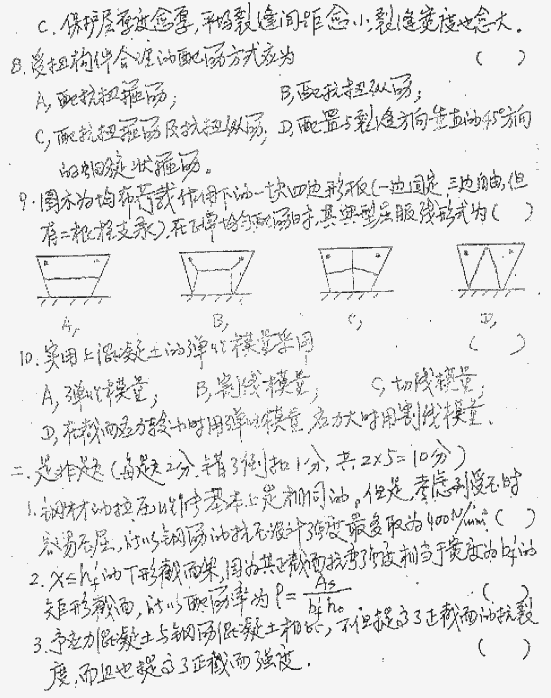 C. 保护层厚度愈厚,平均裂缝间距愈小,裂缝宽度也愈大。
8. 受扭构件合理的配筋方式应为 ( )
A, 配抗扭箍筋; B, 配抗扭纵筋;
C, 配抗扭箍筋及抗扭纵筋; D, 配置与裂缝方向垂直的45°方向
的螺旋状箍筋。
9. 图示为均布荷载作用下的一块四边形板(一边固定,三边自由,但
有二根柱支承),在正弯均匀配筋时,其典型屈服线形式为( )
A, B, C, D,
10. 实用上混凝土的弹性模量采用 ( )
A, 弹性模量; B, 割线模量; C, 切线模量;
D, 在截面应力较小时用弹性模量,应力大时用割线模量。
二. 是非题(每题2分,错了倒扣1分,共2×5=10分)
1. 钢材的拉压性能基本上是相同的。但是,考虑到受压时
容易压屈,所以钢筋的抗压设计强度最多取为400N/mm² ( )
2. x≤h_f'的T形截面梁,因为其正截面抗弯强度相当于宽度为b_f'的
矩形截面,所以配筋率为 ρ = As / b_f' h₀ ( )
3. 予应力混凝土与钢筋混凝土相比,不但提高了正截面的抗裂
度,而且也提高了正截面强度. ( )